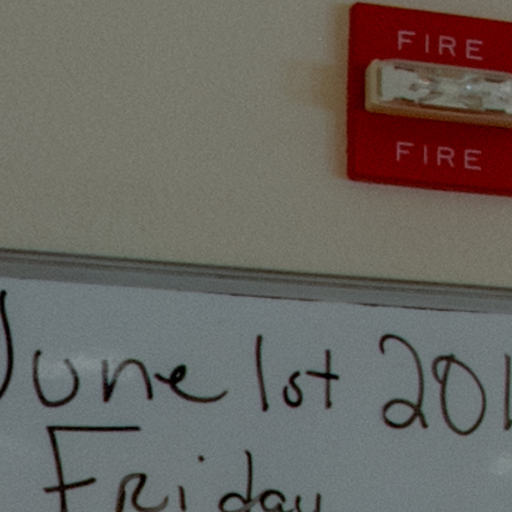 FIRE
FIRE
June 1st 201
Friday